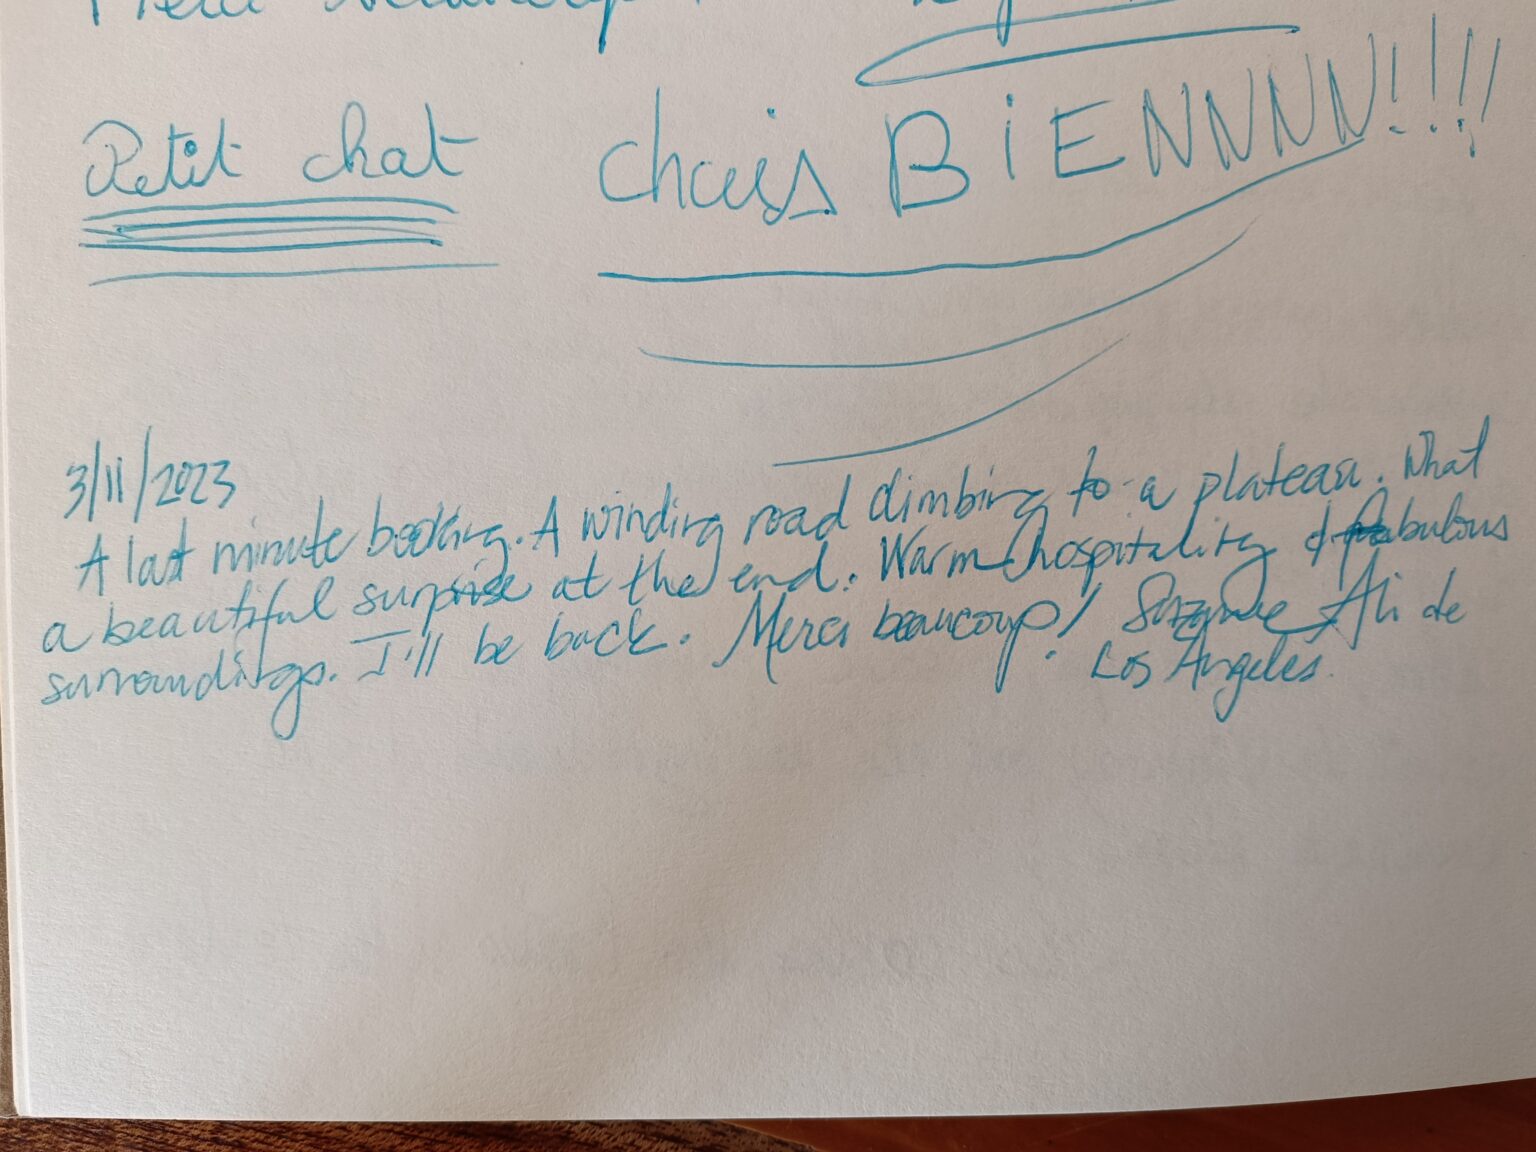 Merci beaucoup
Petit chat chais BiENNNN!!!!
3/11/2023
A last minute booking. A winding road climbing to a plateau. What
a beautiful surprise at the end. Warm hospitality & fabulous
surroundings. I'll be back. Merci beaucoup! Suzanne Ali de
Los Angeles.